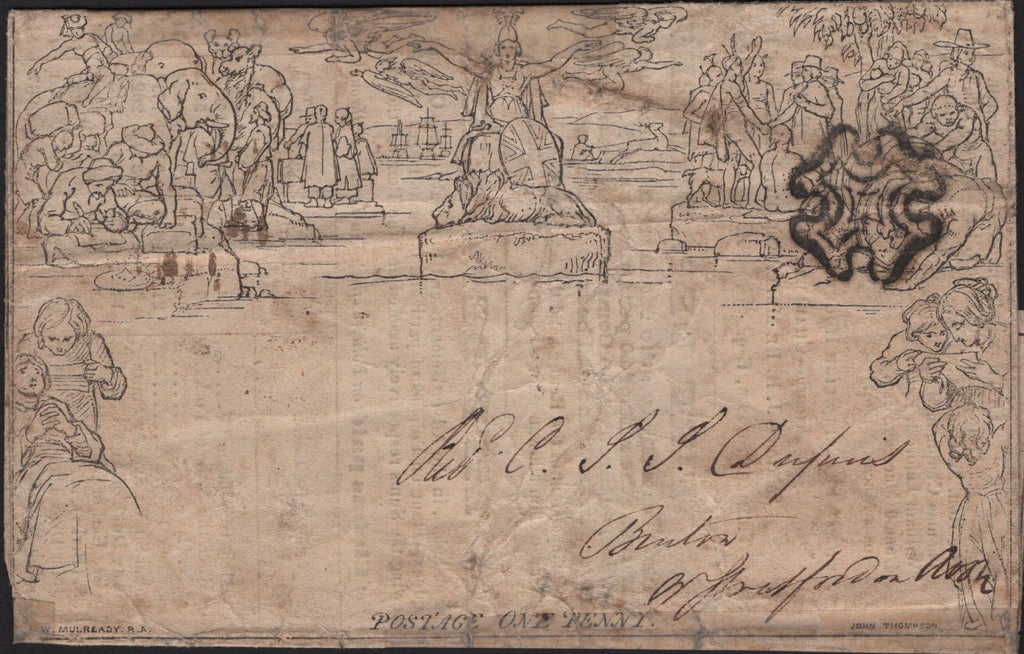 Revd C. S. S. Dupuis
Binton
Nr Stratford on Avon
POSTAGE ONE PENNY.
W. MULREADY. R.A.
JOHN THOMPSON